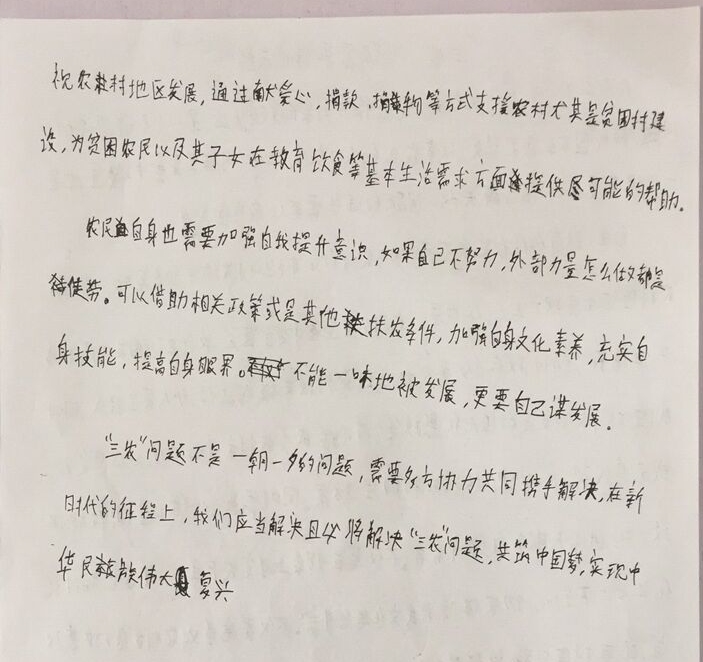 视农村地区发展，通过献爱心，捐款、捐物等方式支援农村尤其是贫困村建
设，为贫困农民以及其子女在教育饮食等基本生活需求方面提供尽可能的帮助。
农民自身也需要加强自我提升意识，如果自己不努力，外部力量怎么做都是
徒劳。可以借助相关政策或是其他扶农条件，加强自身文化素养，充实自
身技能，提高自身眼界。不能一味地被发展，更要自己谋发展。
“三农”问题不是一朝一夕的问题，需要多方协力共同携手解决，在新
时代的征程上，我们应当解决且必将解决“三农”问题，共筑中国梦，实现中
华民族伟大复兴